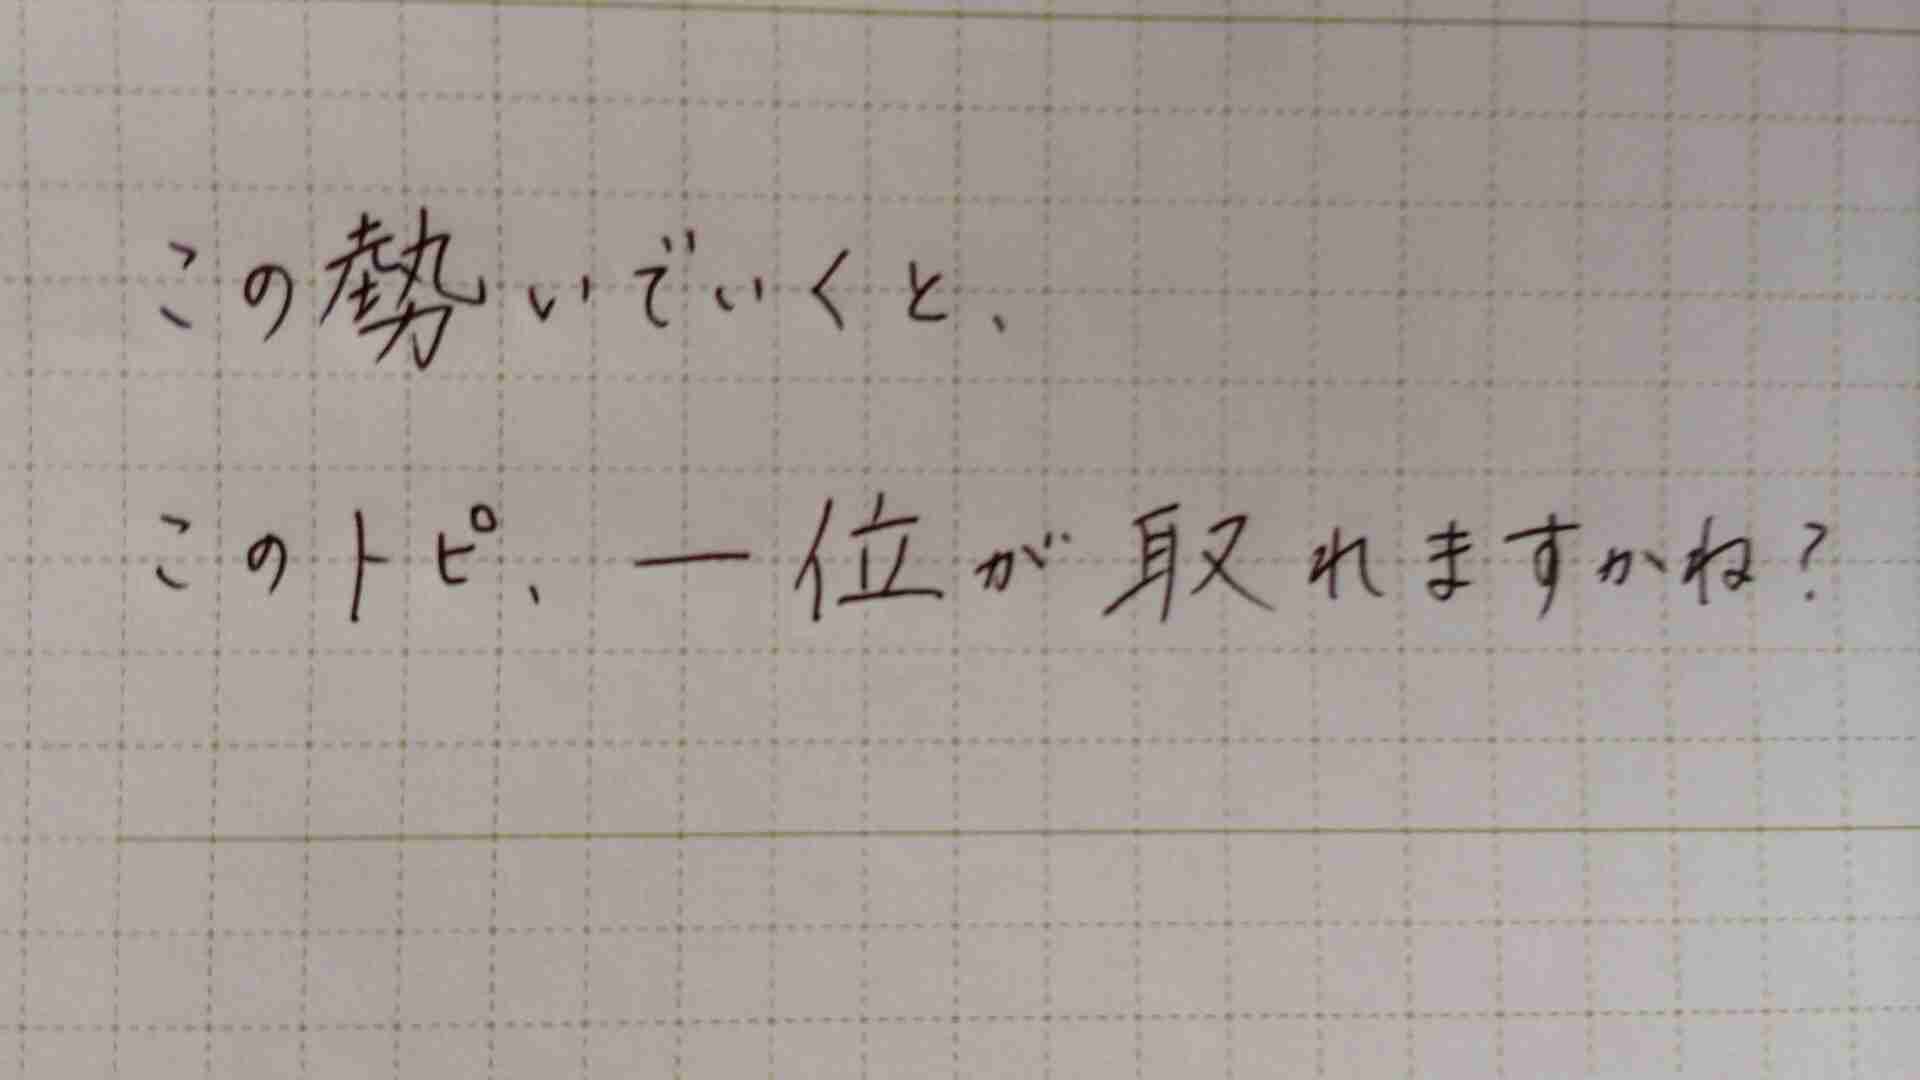 この勢いでいくと、
このトピ、一位が取れますかね?